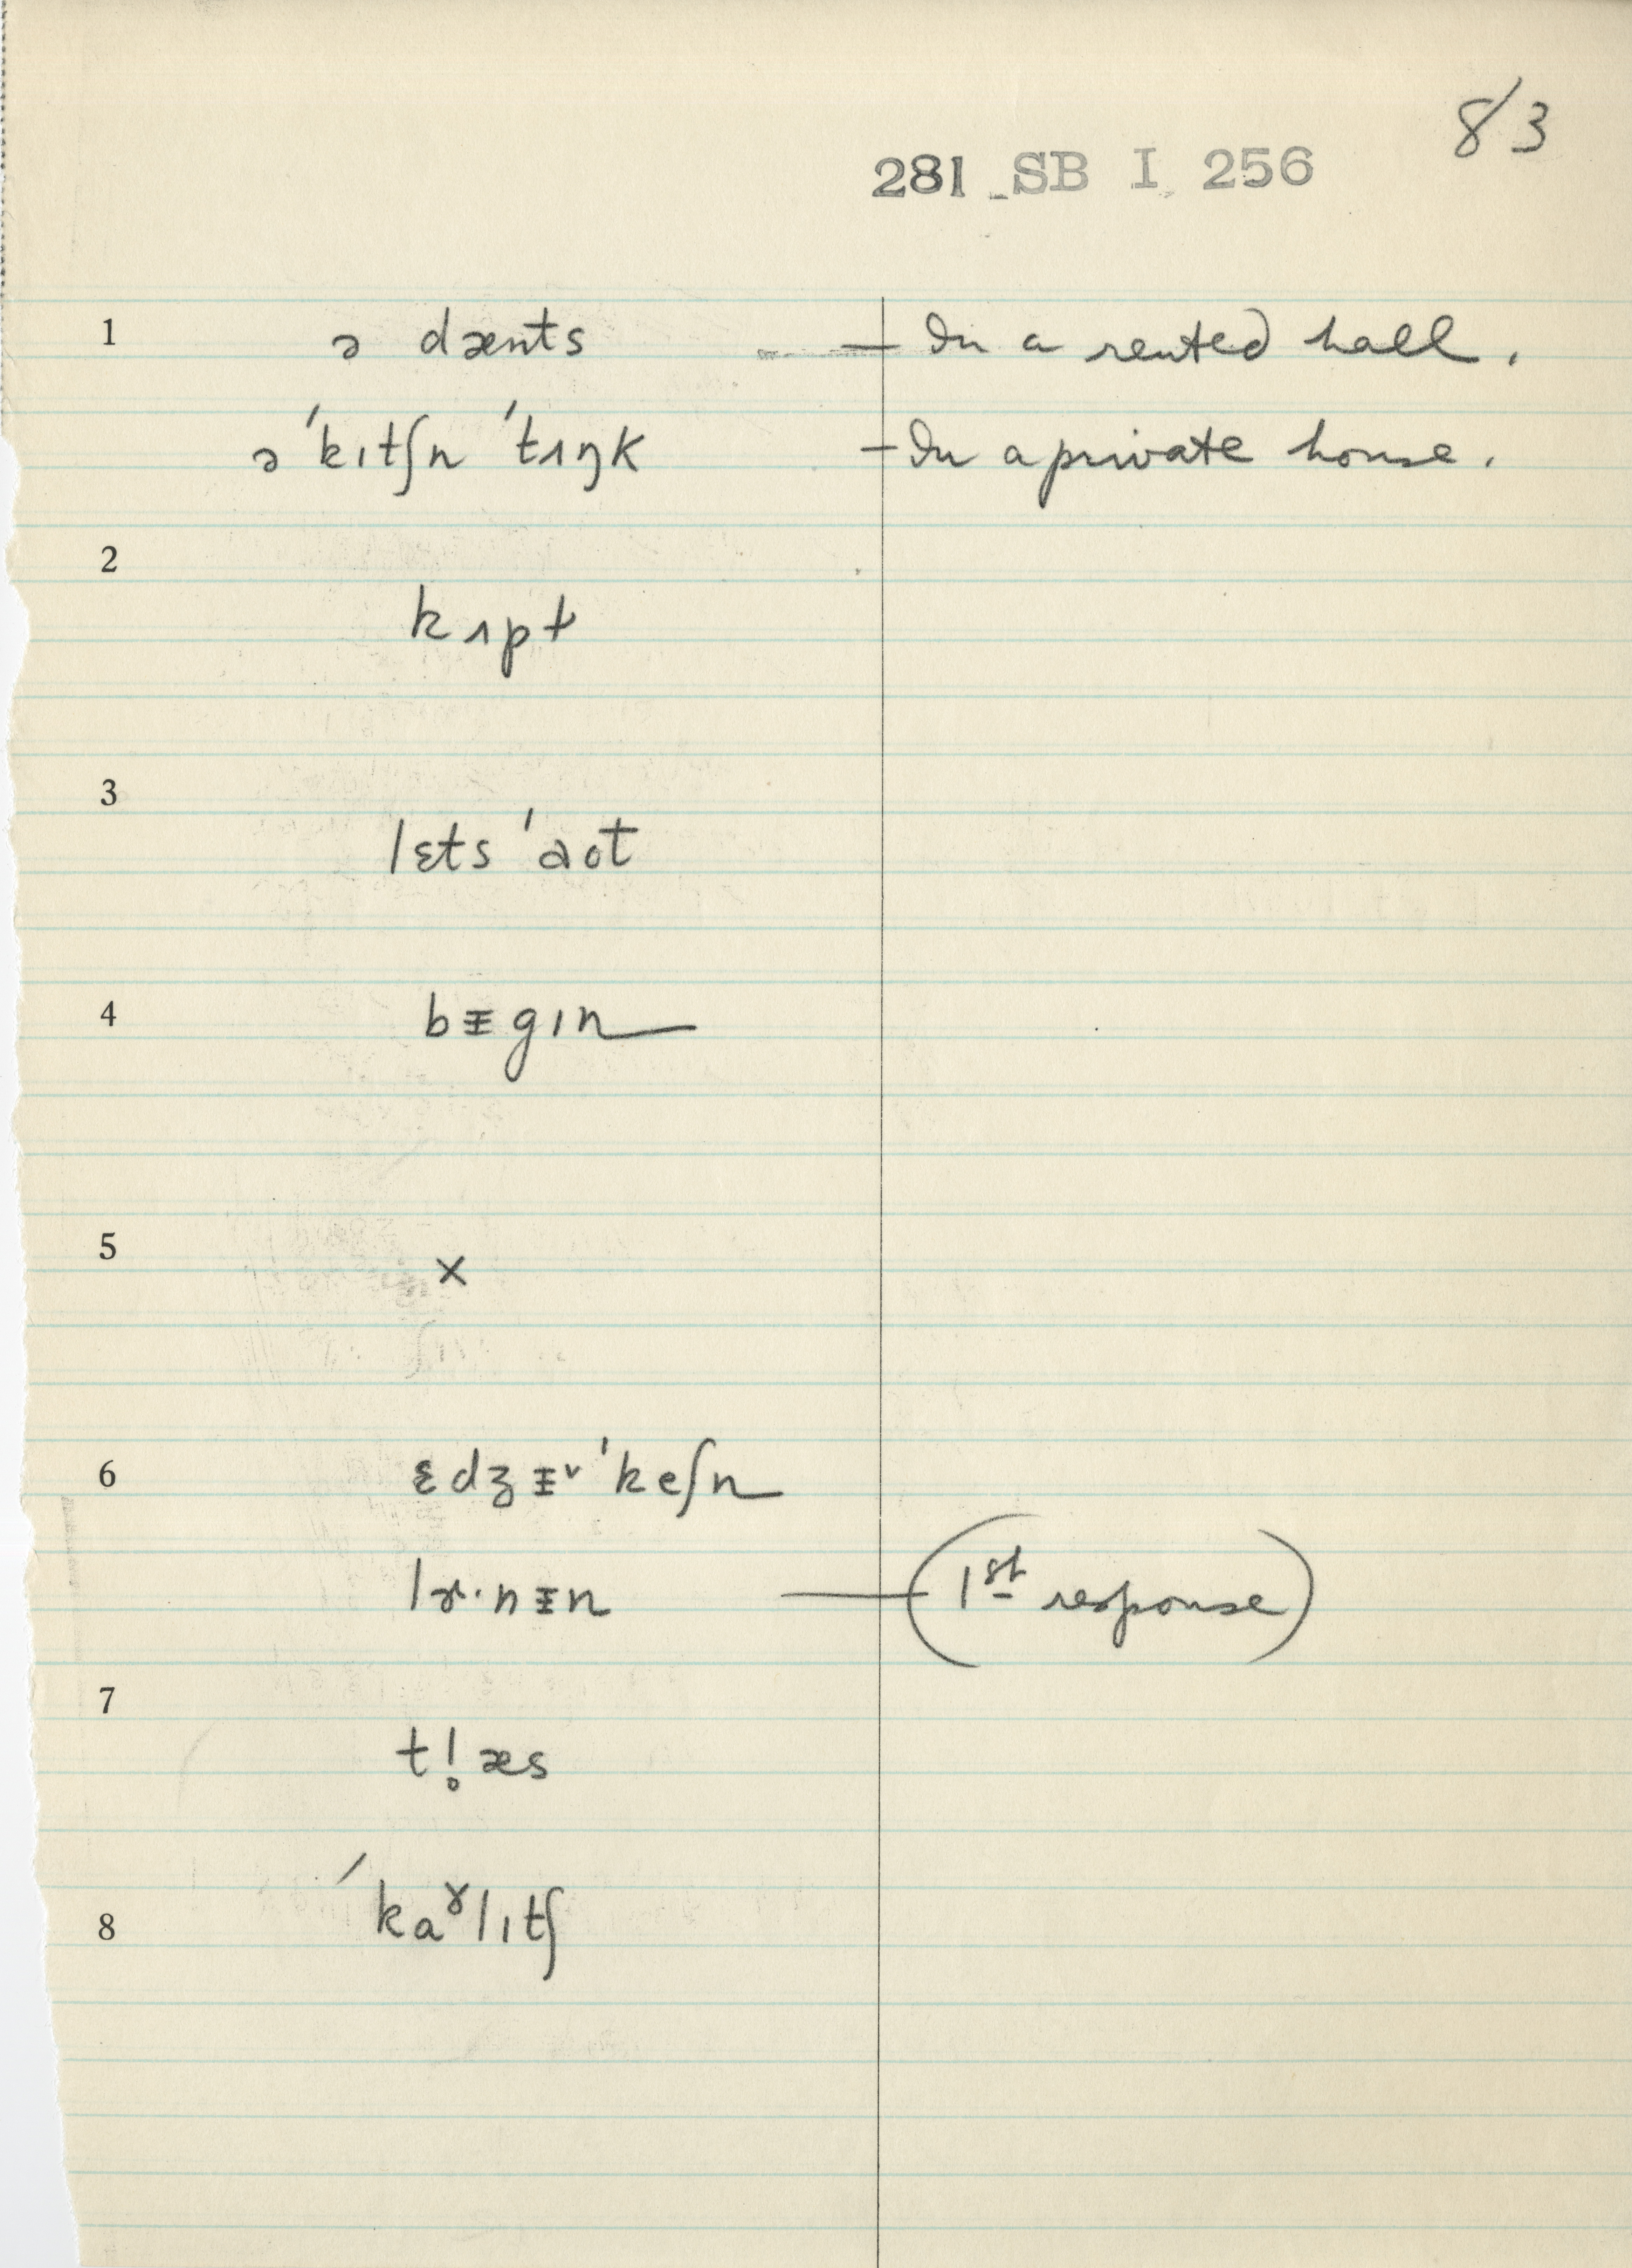 83
281 SB I 256
1 ə dænts — In a rented hall.
ə ˈkɪtʃn ˈtɪŋk — In a private house.
2
kɪpt
3
lɛts ˈaʊt
4 bᵻgɪn
5
×
6 ɛdʒᵻᵛˈkeʃn
lɚ·nᵻn — (1st response)
7
tl̥æs
8 ˈkaɤlɪtʃ